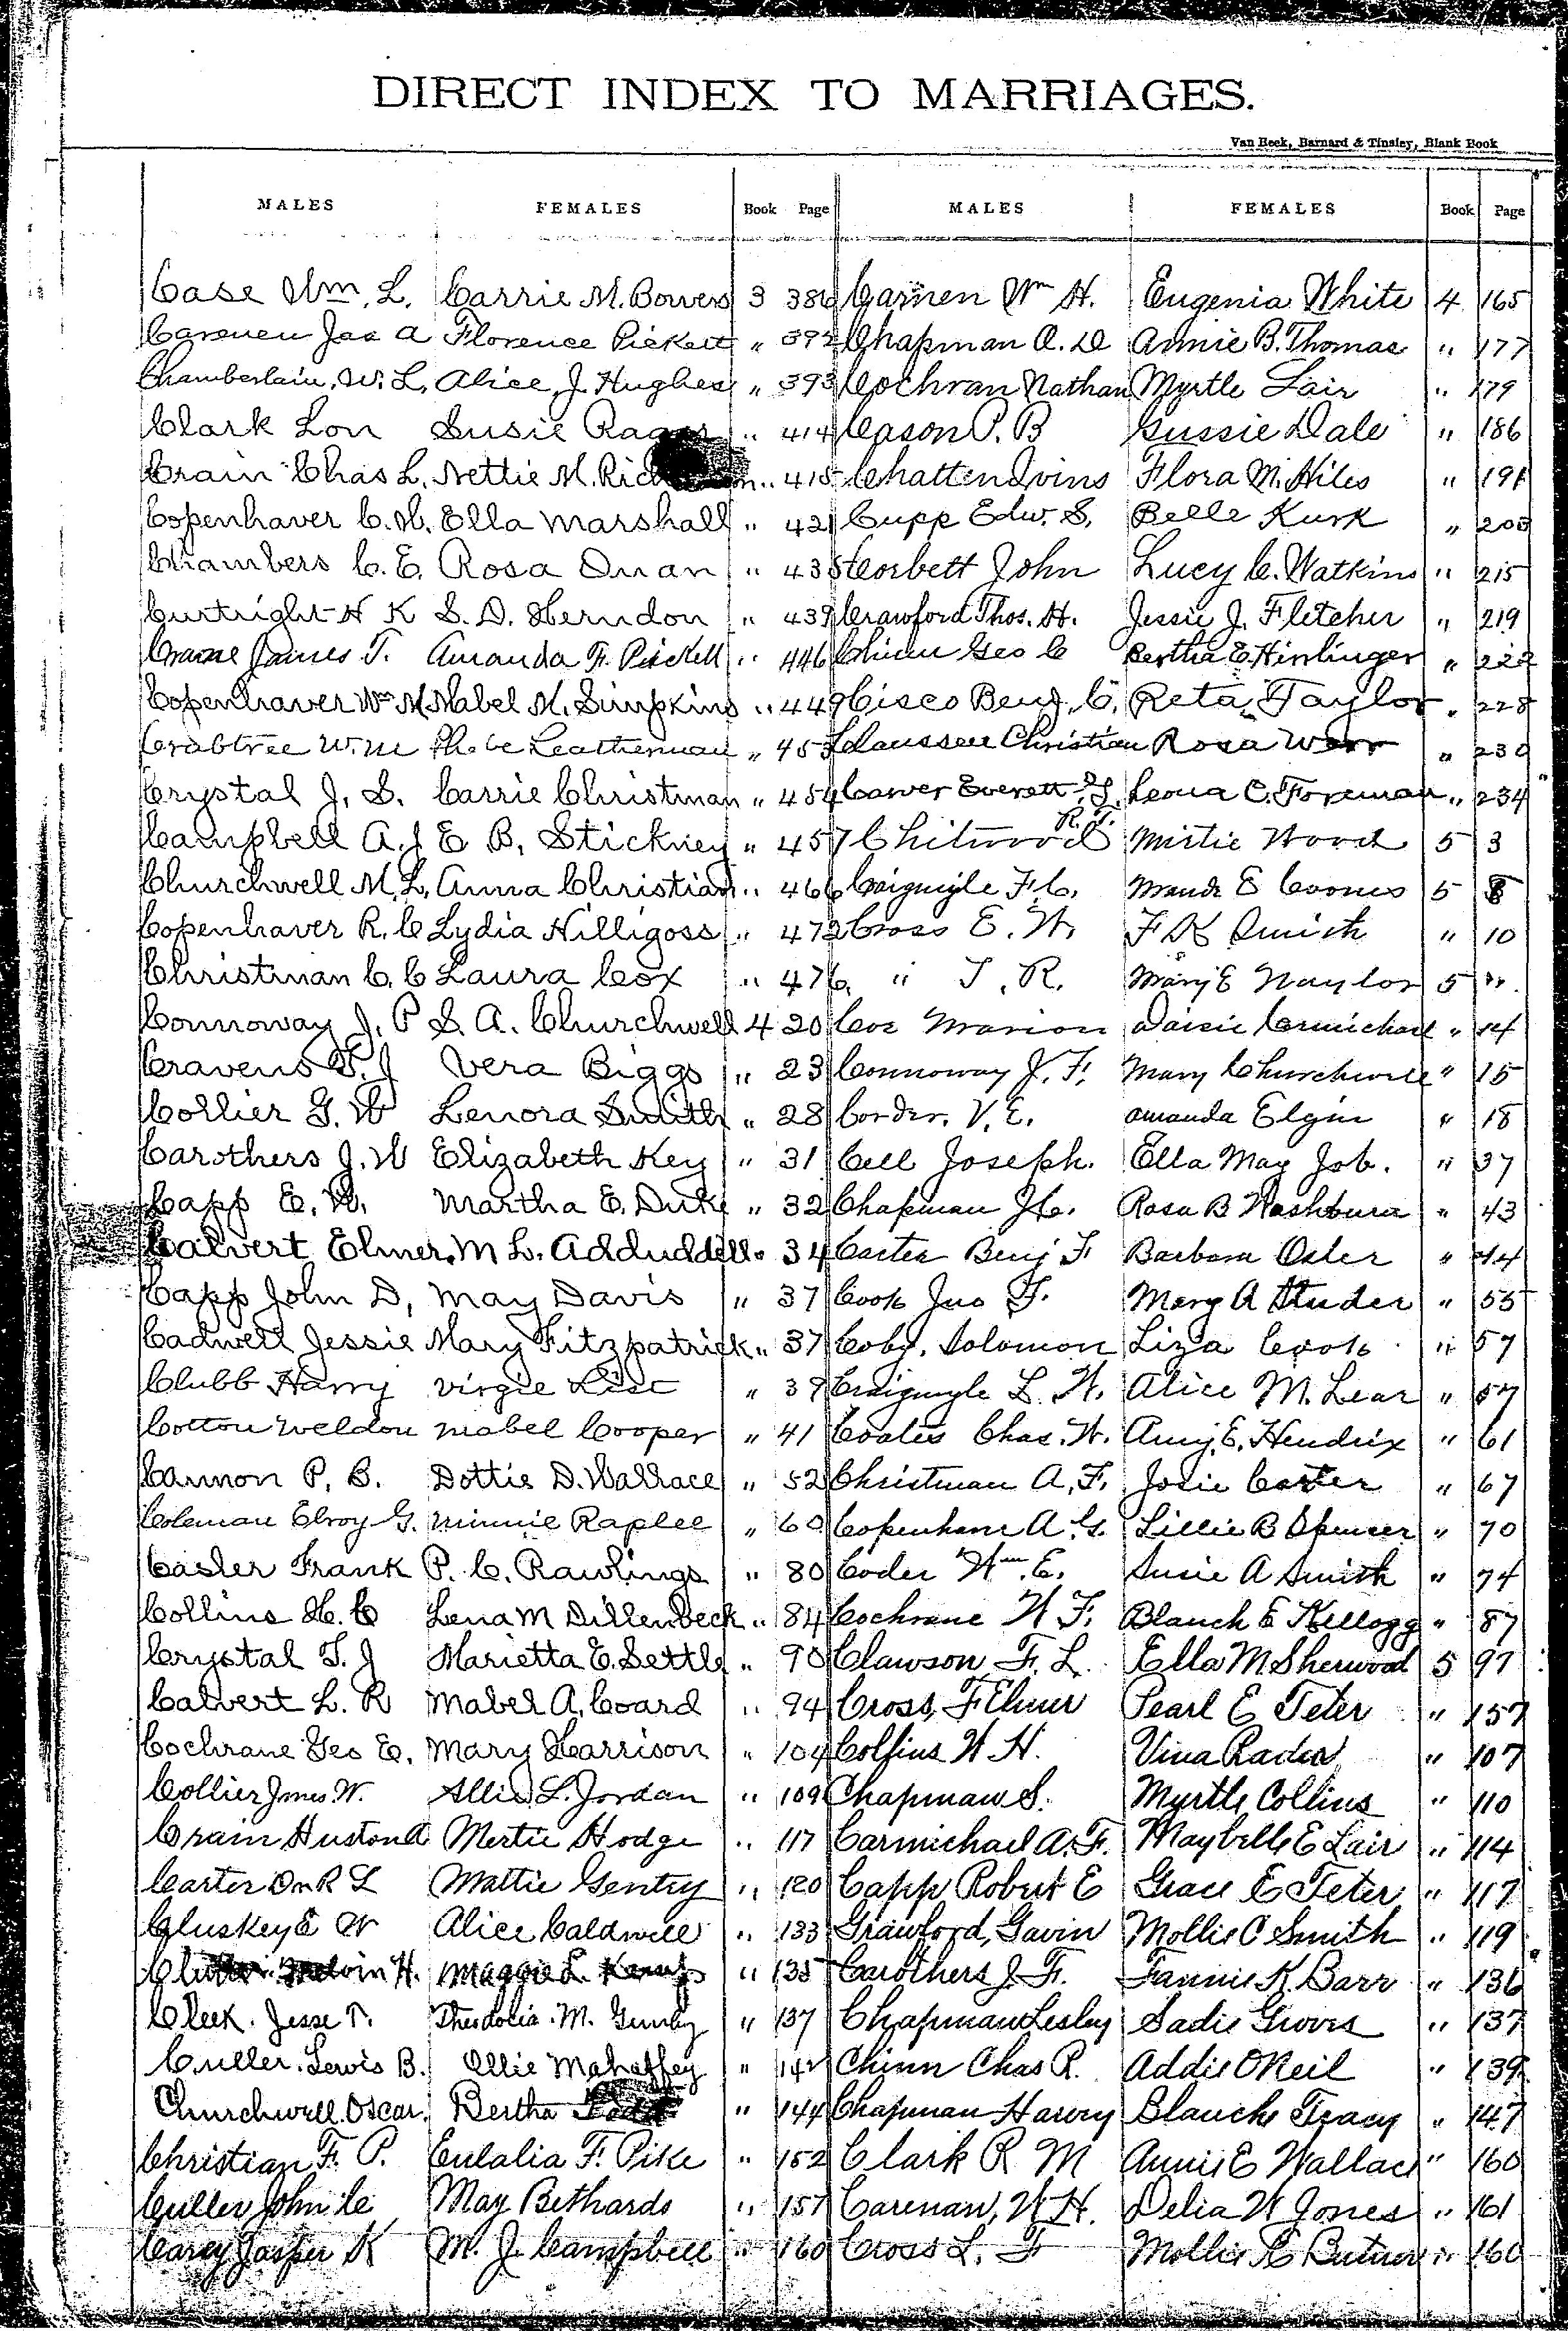 DIRECT INDEX TO MARRIAGES.
Van Beek, Barnard & Tinsley, Blank Book
MALES FEMALES Book Page MALES FEMALES Book Page
Case Wm. L. Carrie M. Bowers 3 386 Carnen Wm H. Eugenia White 4 165
Carenen Jas A Florence Pickett " 392 Chapman O. D Annie B. Thomas " 177
Chamberlain, W. L. Alice J. Hughes " 393 Cochran Nathan Myrtle Lair " 179
Clark Lon Susie " 414 Cason P. B Gussie Dale " 186
Crain Chas L. Nettie M. " 415 Chatten Ivins Flora M. Hiles " 191
Copenhaver C. H. Ella Marshall " 421 Cupp Edw. S. Belle Kurk " 203
Chambers C. E. Rosa Duan " 435 Corbett John Lucy C. Watkins " 215
Curtright H K S. D. Herndon " 439 Crawford Thos. H. Jessie J. Fletcher " 219
Craine James T. Amanda F. Pickett " 446 Chinn Geo C Bertha E. Hirlinger " 222
Copenhaver Wm M. Mabel M. Simpkins " 449 Cisco Benj. C. Reta Taylor " 228
Crabtree W. M Phebe Leatherman " 453 Claussen Christian Rosa " 230
Crystal J. S. Carrie Christman " 454 Carver Everett Leona C. Foreman " 234
Campbell A. J E B. Stickney " 457 Chitwood R. T. Mirtie Wood 5 3
Churchwell M. L. Anna Christian " 466 Craigmyle F. C. Maude E Coons 5 8
Copenhaver R. C Lydia Hilligoss " 472 Cross E. W. F K Smith " 10
Christman C. C Laura Cox " 476 " T. R. Mary E Naylor 5 "
Connoway J. P S. A. Churchwell 4 20 Cox Marion Daisie Carmichael " 14
Cravens T. J Vera Biggs " 23 Connoway J. F. Mary Churchwell " 15
Collier G. W Lenora Smith " 28 Corder. V. E. Amanda Elgin " 18
Carothers J. W Elizabeth Key " 31 Cell Joseph. Ella May Job. " 37
Capp E. W. Martha E. Duke " 32 Chapman J. C. Rosa B Washburn " 43
Calvert Elmer. M L. Adduddell " 34 Carter Benj F Barbara Osler " 44
Capp John D, May Davis " 37 Cook Jno F. Mary A Studer " 55
Cadwell Jessie Mary Fitzpatrick " 37 Coby. Solomon Liza Cook " 57
Clubb Harry Virgie List " 39 Craigmyle L. W. Alice M. Lear " 57
Cotton Weldon Mabel Cooper " 41 Coates Chas. W. Amy E. Hendrix " 61
Cannon P. B. Dottie D. Wallace " 52 Christman A. F. Josie Carter " 67
Coleman Elroy G. Minnie Raplee " 60 Copenhaver A. G. Lillie B Spencer " 70
Casler Frank P. C. Rawlings " 80 Coder Wm. E. Susie A Smith " 74
Collins H. C Lena M Dillenbeck " 84 Cochrane W F. Blanch E Kellogg " 87
Crystal T. J Marietta E. Settle " 90 Clawson F. L. Ella M Sherwood 5 97
Calvert L. R Mabel A. Coard " 94 Cross, F Elmer Pearl E Teter " 157
Cochrane Geo E. Mary Harrison " 104 Collins W H. Vina Rader " 107
Collier Jmes. W. Allie L. Jordan " 109 Chapman S. Myrtle Collins " 110
Crain Huston A Mertie Hodge " 117 Carmichael A. F. Maybelle E Lair " 114
Carter Dn R L Mattie Gentry " 120 Capp Robert E Grace E Teter " 117
Cluskey E W Alice Caldwell " 133 Crawford, Gavin Mollie C Smith " 119
H. Maggie L. " 135 Carothers J. F. Fannie K. Barr " 136
Cleek. Jesse T. Theodocia. M. Gunby " 137 Chapman Lesley Sadie Groves " 137
Culler. Lewis B. Ollie Mahaffey " 142 Chinn Chas R. Addie ONeil " 139
Churchwell. Oscar. Bertha " 144 Chapman Harvey Blanche Tracy " 147
Christian F. P. Eulalia F. Pike " 152 Clark R M Annie E Wallace " 160
Culler John C May Bethards " 157 Carenan, W H. Delia W Jones " 161
Carey Jasper K M. J. Campbell " 160 Cross L. F Mollie E Butner " 160